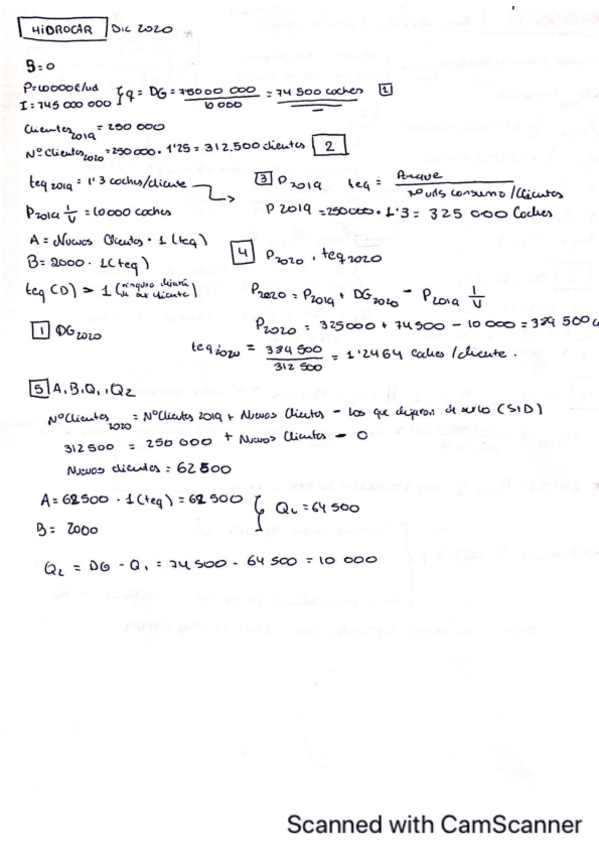 HIDROCAR DIC 2020
S=0
P=10000€/ud
I=745 000 000 } q = DG = 75000 000 / 10 000 = 74 500 coches 1
Clientes2019 = 250 000
Nº Clientes2020 = 250 000 · 1'25 = 312.500 clientes 2
teq 2019 = 1'3 coches/cliente
3 P2019 teq = Parque / Nº uds consumo/Clientes
P2019 1/V = 10000 coches
P 2019 = 250000 · 1'3 = 325 000 Coches
A = Nuevos Clientes · 1 (teq)
B = 2000 · 1 (teq)
4 P2020, teq2020
teq (D) > 1 (ninguno dejará de ser cliente)
P2020 = P2019 + DG2020 - P2019 1/V
1 DG2020
P2020 = 325000 + 74 500 - 10 000 = 389 500
teq2020 = 389 500 / 312 500 = 1'2464 Coches/cliente.
5 A, B, Q1, Q2
Nº Clientes2020 = Nº Clientes 2019 + Nuevos Clientes - los que dejaron de serlo (S/D)
312 500 = 250 000 + Nuevos Clientes - 0
Nuevos clientes: 62 500
A = 62 500 · 1 (teq) = 62 500
B = 2000 } Q1 = 64 500
Q2 = DG - Q1 = 74 500 - 64 500 = 10 000
Scanned with CamScanner